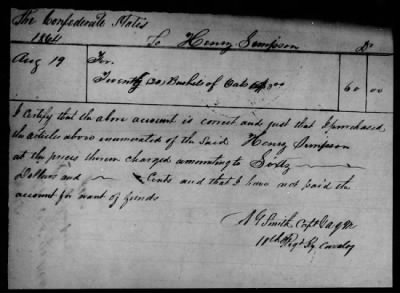 The Confederate States
1864 To Henry Simpson Dr
Aug 19 For
Twenty (20) Bushels of Oats @ 3 00 60 00
I certify that the above account is correct and just that I purchased
the articles above enumerated of the said Henry Simpson
at the prices therein charged amounting to Sixty
Dollars and Cents and that I have not paid the
account for want of funds
Smith Capt & AQM
10th Regt Ky Cavalry